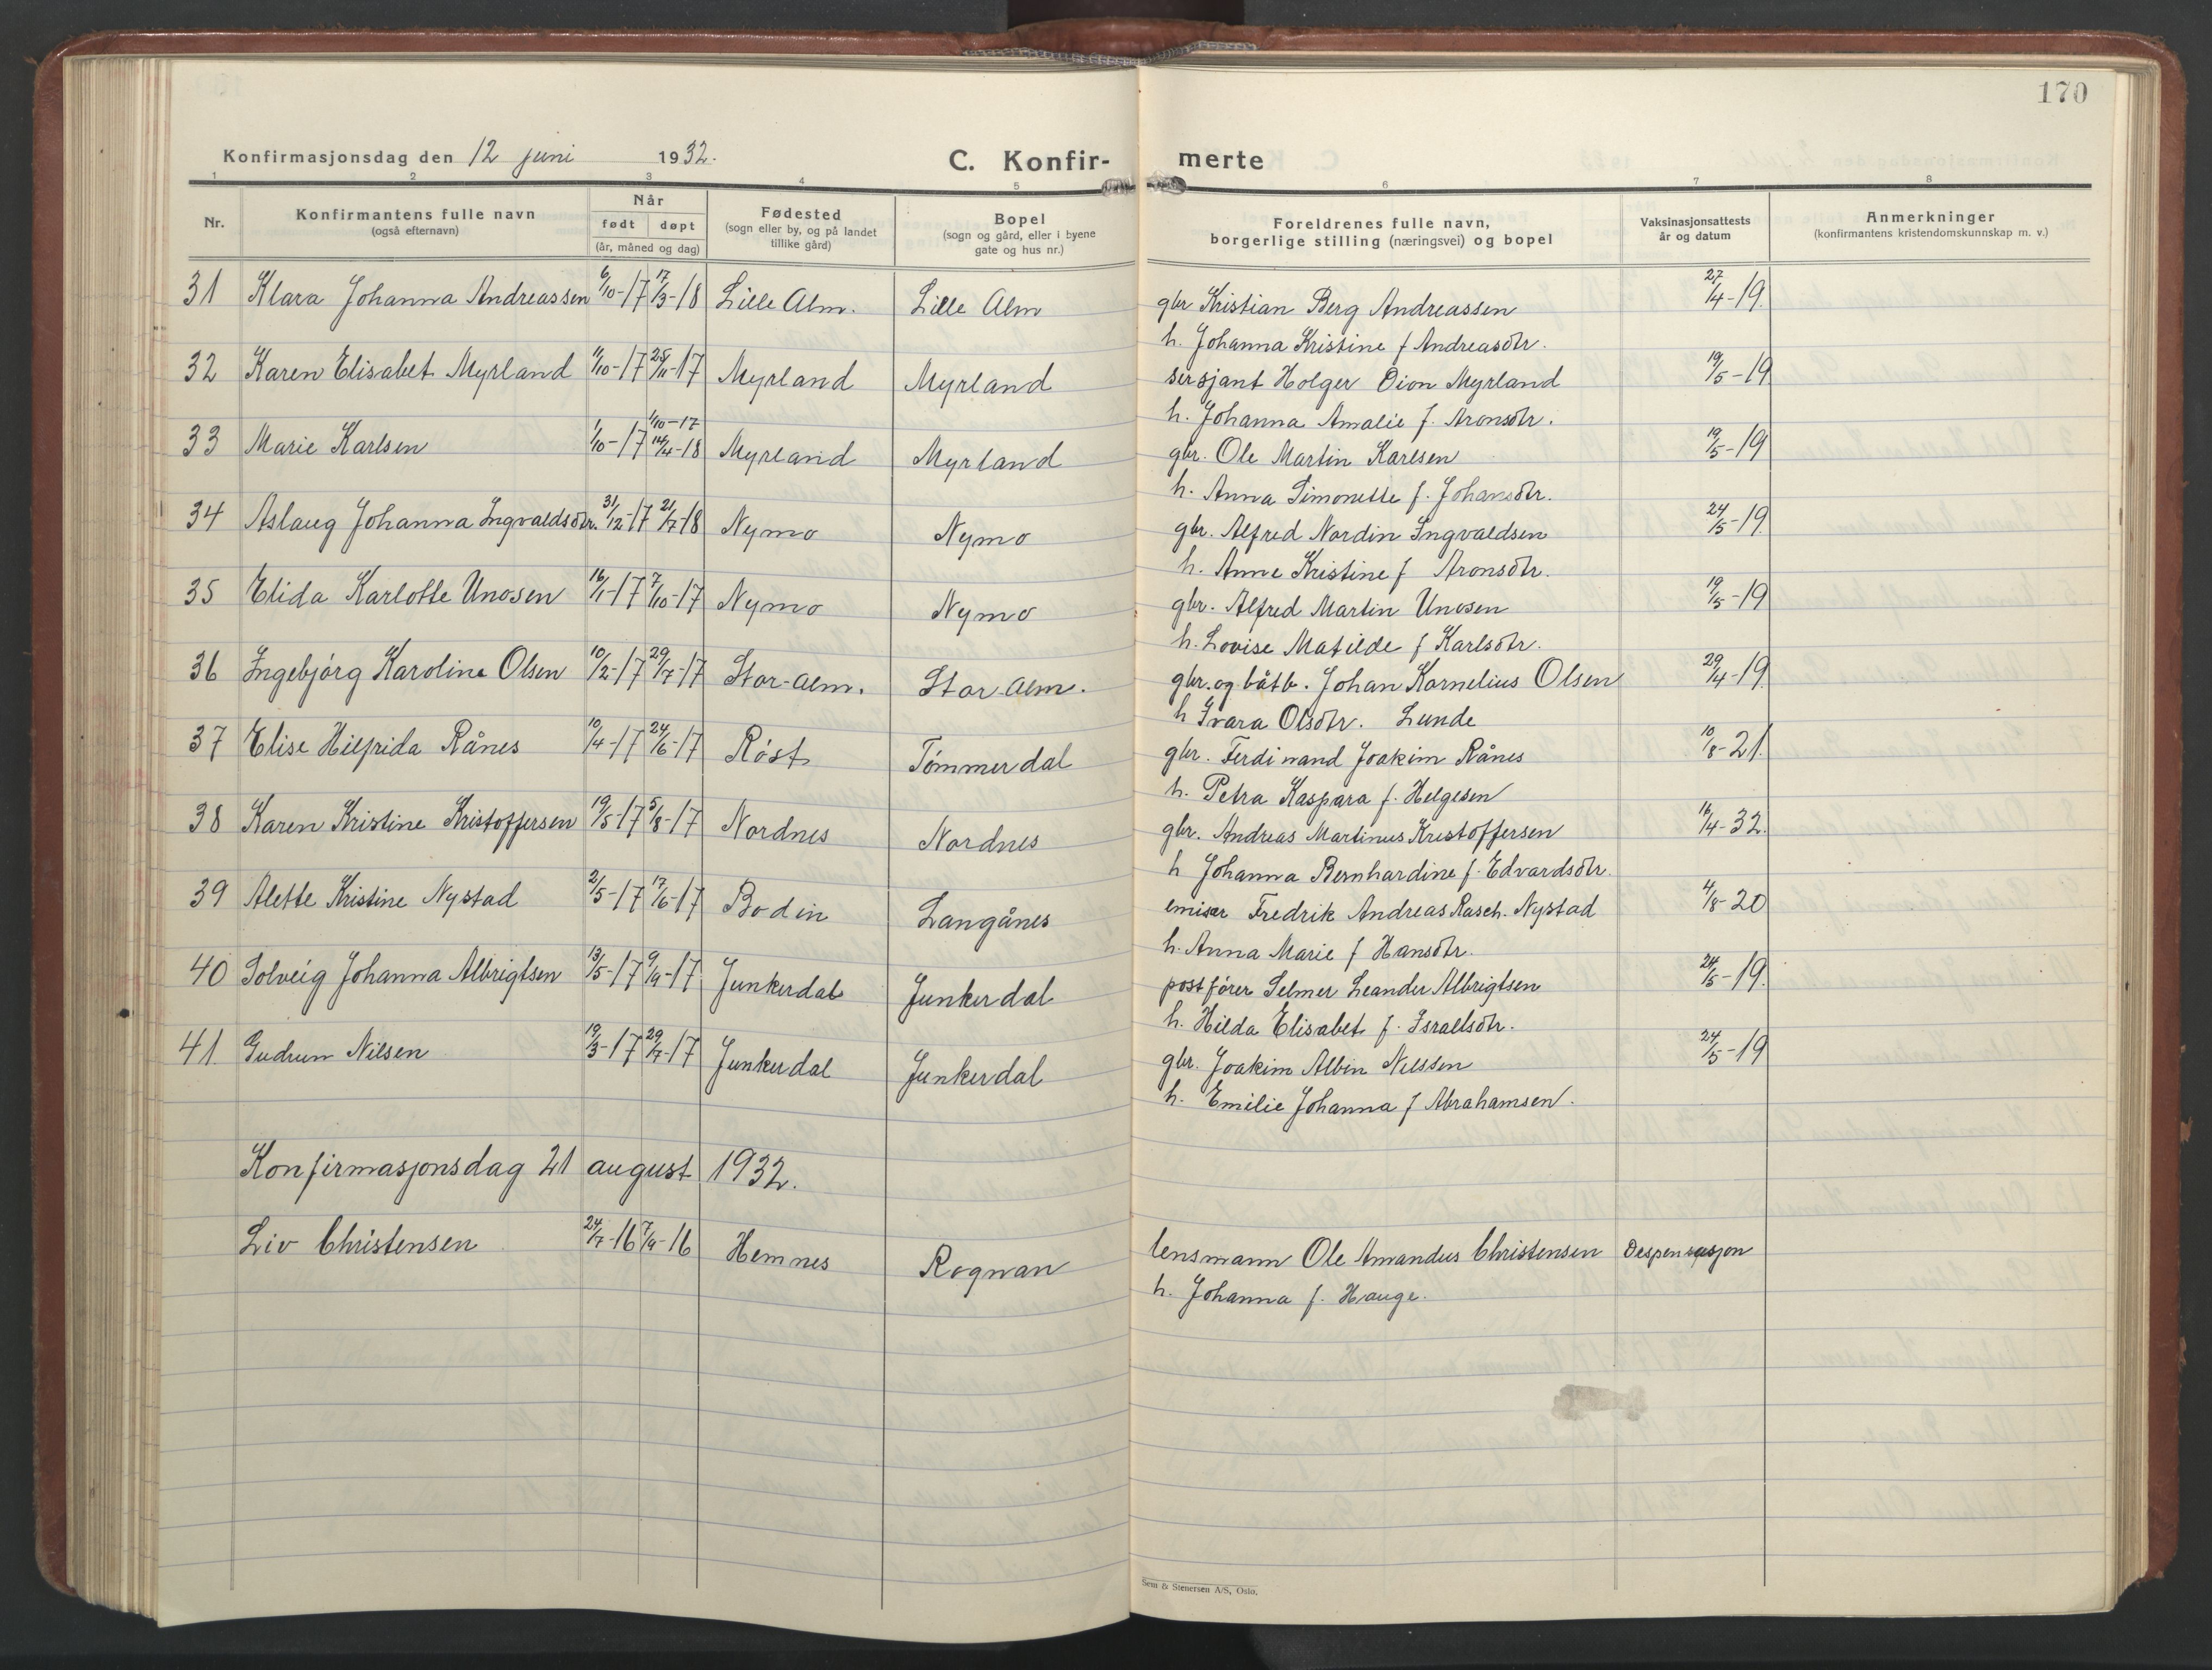 170
Konfirmasjonsdag den 12 juni 1932. C. Konfirmerte
1 2 3 4 5 6 7 8
Nr. Konfirmantens fulle navn (også efternavn) Når født døpt (år, måned og dag) Fødested (sogn eller by, og på landet tillike gård) Bopel (sogn og gård, eller i byene gate og hus nr.) Foreldrenes fulle navn, borgerlige stilling (næringsvei) og bopel Vaksinasjonsattests år og datum Anmerkninger (konfirmantens kristendomskunnskap m. v.)
31 Klara Johanna Andreassen 6/10-17 17/3-18 Lille Alm. Lille Alm gbr Kristian Berg Andreassen 27/4-19.
h. Johanna Kristine f Andreasdtr.
32 Karen Elisabet Myrland 11/10-17 25/11-17 Myrland Myrland sersjant Holger Dion Myrland 19/5-19
h. Johanna Amalie f. Aronsdtr.
1/10-17
33 Marie Karlsen 1/10-17 14/4-18 Myrland Myrland gbr. Ole Martin Karlsen 19/5-19
h. Anna Simonette f. Johansdtr.
34 Aslaug Johanna Ingvaldsdtr. 31/12-17 21/7-18 Nymo Nymo gbr. Alfred Nordin Ingvaldsen 24/5-19.
h. Anne Kristine f Aronsdtr.
35 Elida Karlotte Unosen 16/1-17 7/10-17 Nymo Nymo gbr. Alfred Martin Unosen 19/5-19
h. Lovise Matilde f Karlsdtr.
36 Ingebjørg Karoline Olsen 10/2-17 29/7-17 Stor-Alm. Stor-Alm. gbr. og båtb. Johan Kornelius Olsen 29/4-19.
h Ivara Olsdtr. Lunde
37 Elise Hilfrida Rånes 10/4-17 24/6-17 Røst Tømmerdal gbr. Ferdinand Joakim Rånes 10/8-21.
h. Petra Kaspara f. Helgesen
38 Karen Kristine Kristoffersen 19/5-17 5/8-17 Nordnes Nordnes gbr. Andreas Martinus Kristoffersen 16/4-32.
h Johanna Bernhardine f. Edvardsdtr.
39 Alette Kristine Nystad 2/5-17 17/6-17 Bodin Langånes emisær Fredrik Andreas Rasch. Nystad 4/8-20
h. Anna Marie f Hansdtr.
40 Solveig Johanna Albrigtsen 13/5-17 9/9-17 Junkerdal Junkerdal postfører Selmer Leander Albrigtsen 24/5-19.
h. Hilda Elisabet f. Israelsdtr.
41. Gudrun Nilsen 19/3-17 29/7-17 Junkerdal Junkerdal gbr. Joakim Albin Nilssen 24/5-19
h. Emilie Johanna f Abrahamsen.
Konfirmasjonsdag 21 august 1932.
Liv Christensen 24/7-16 7/9-16 Hemnes Rognan lensmann Ole Amandus Christensen Dispensasjon
h. Johanna f. Hauge.
Sem & Stenersen A/S, Oslo.